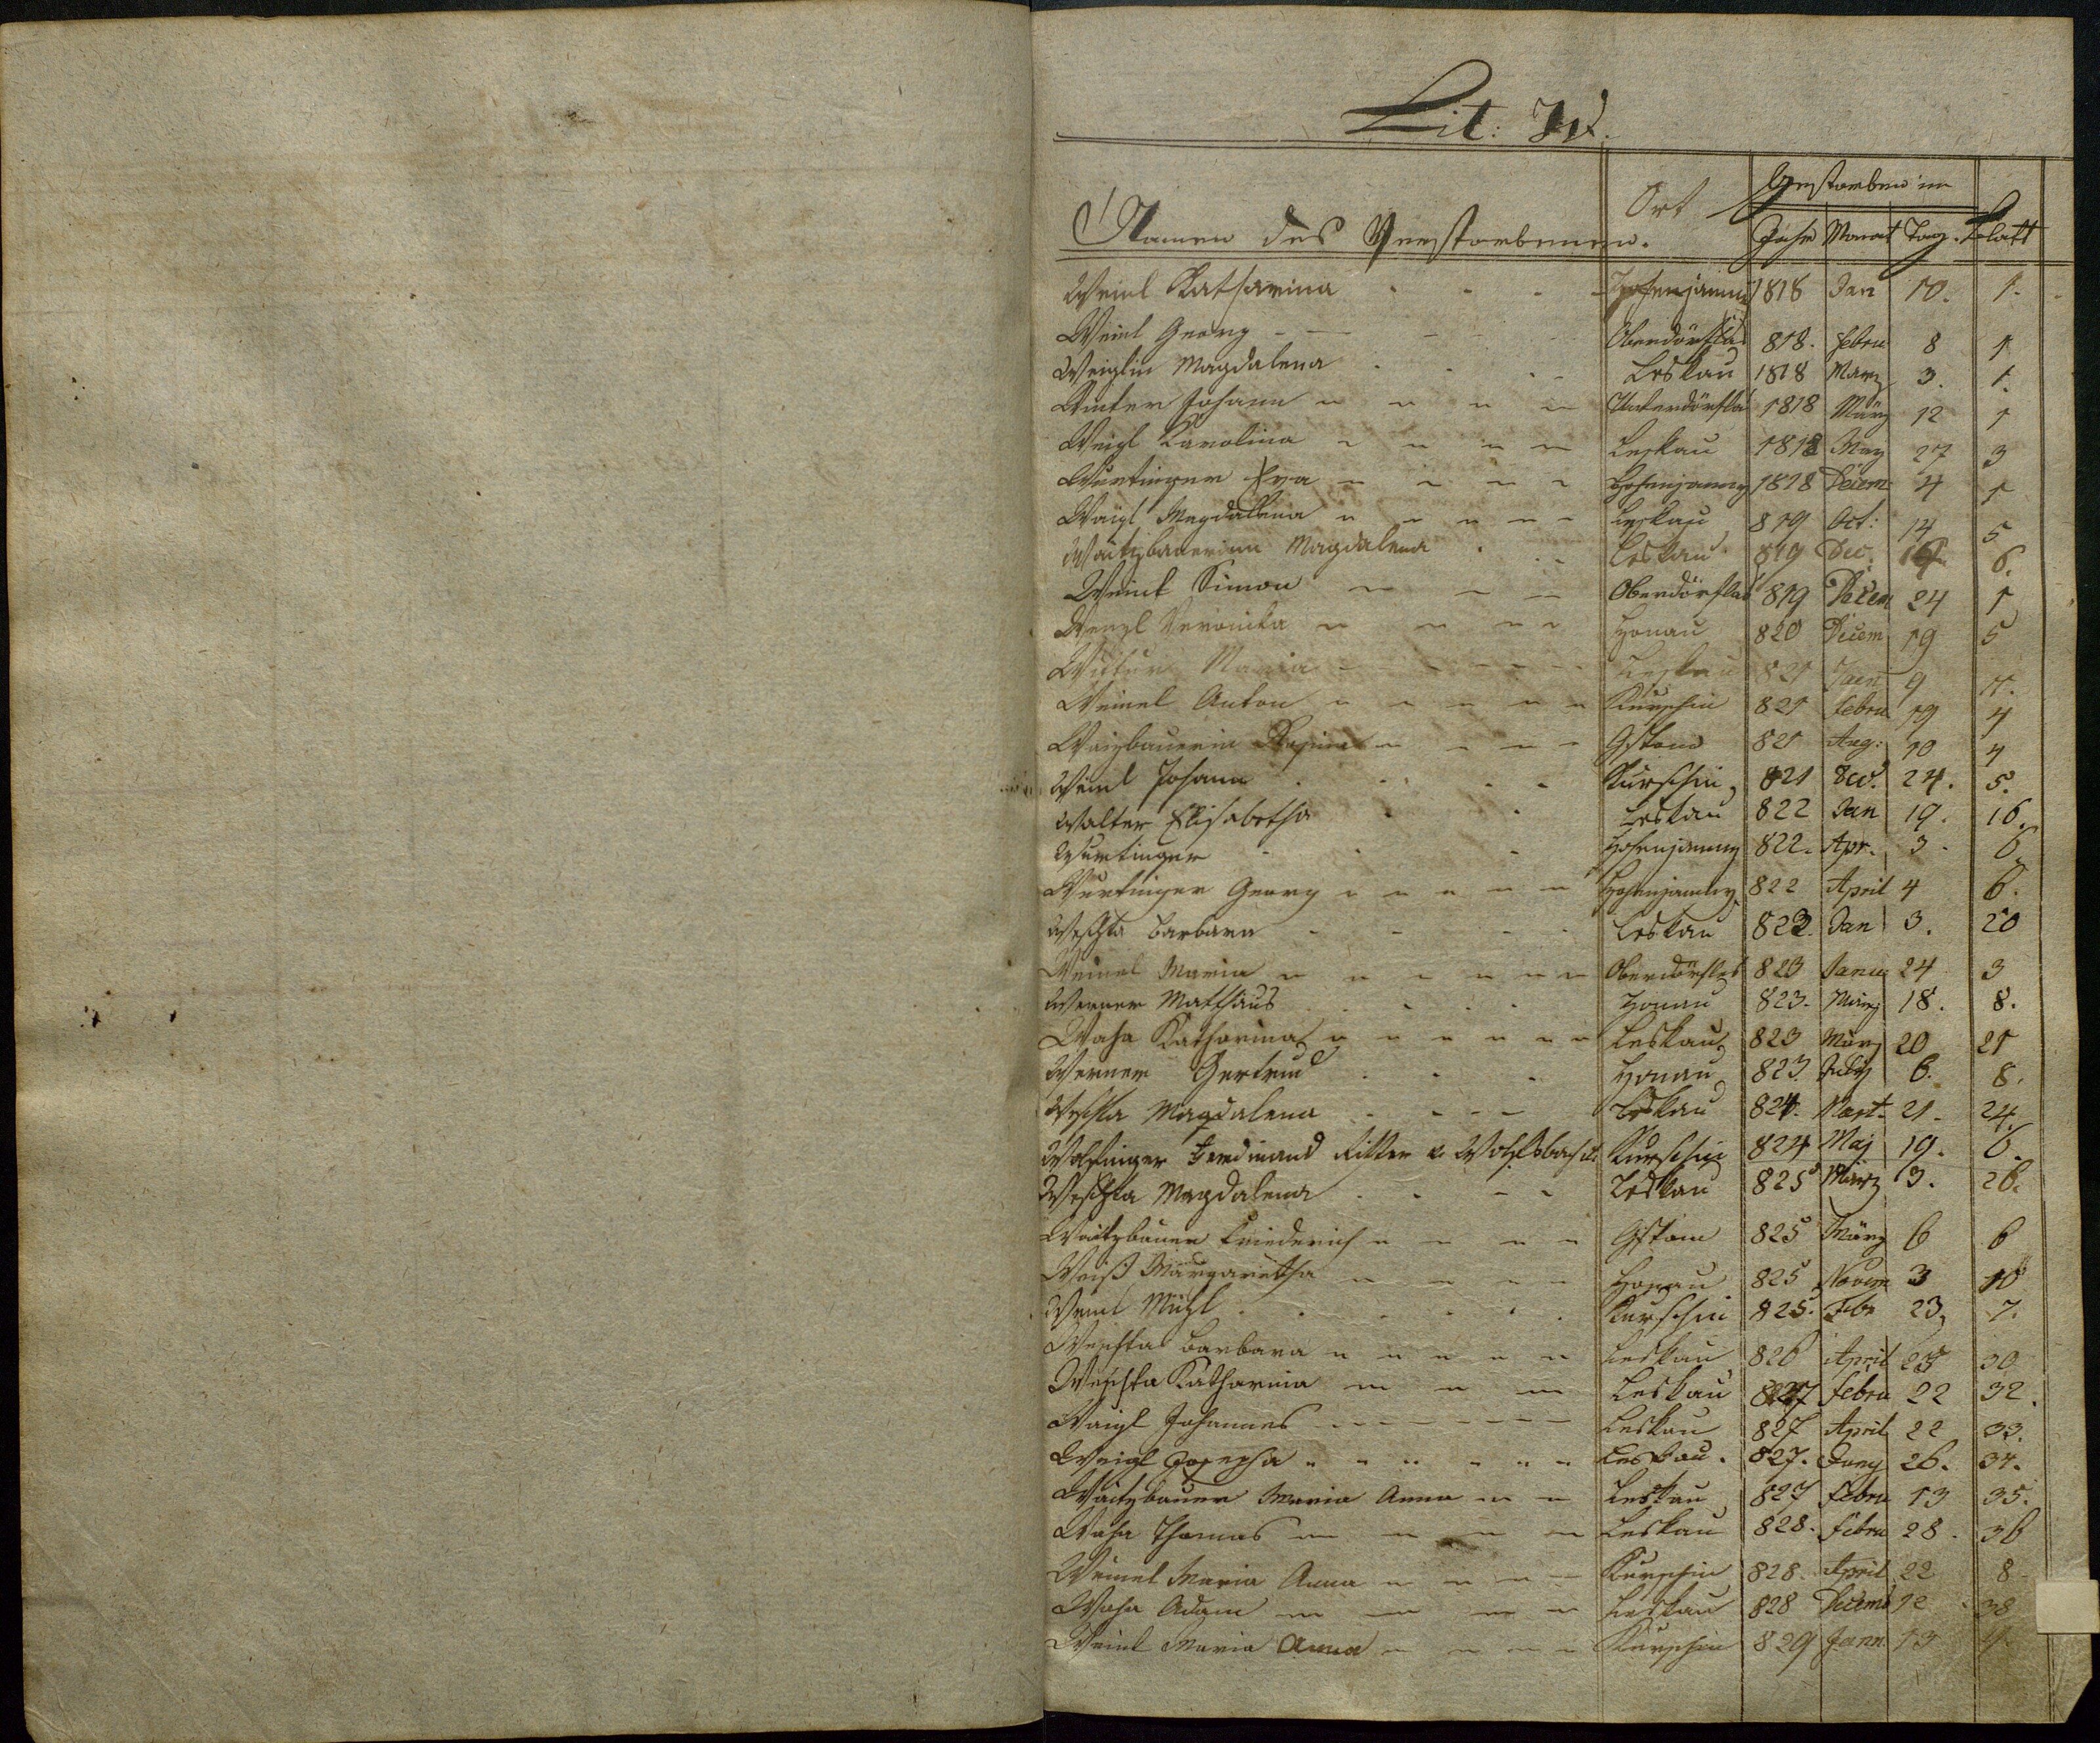 Lit: W.
Namen des Verstorbenen. Ort Gestorben im Jahr Monat Tag. Blatt
Weinl Katharina Hohenjamny 1818 Jan 10. 1.
Weinl Georg Oberdörflas 818. Febru 8 1
Weiglin Magdalena Leskau 1818 März 3. 1.
Winter Johann Unterdörflas 1818 März 12 1
Weigl Karolina Leskau 1818 May 27 3
Wurtinger Eva Hohenjamny 1818 Decem 4 1
Waigl Magdallena Leskau 819 Oct: 14 5
Waitzbauerinn Magdalena Leskau 819 Dec. 6.
Weinl Simon Oberdörflas 819 Decem 24 1
Wenzl Veronika Honau 820 Decem 19 5
Maria Leskau 821 Jaen 9
Weinel Anton Kurschin 821 Febru 19 4
Waizbauerin Gstom 821 Aug: 10 4
Weinl Johann Kurschin 821 Dec. 24. 5.
Walter Elisabetha Leskau 822 Jan 19. 16.
Wurtinger Hohenjamny 822. Apr. 3. 6.
Wurtinger Georg Hohenjamny 822 April 4 6.
Weschta Barbara Leskau 823. Jan 3. 20
Weinel Maria Oberdörflas 823 Janu 24 3
Werner Matthäus Honau 823. März 18. 8.
Waha Katharina Leskau 823 März 20 21
Werner Gertrud Honau 823. July 6. 8.
Weschta Magdalena Leskau 824. 21. 24.
Wolfinger Ferdinand Ritter v. Kurschin 824 Maj 19. 6.
Weschta Magdalena Leskau 825 März 3. 26.
Waitzbauer Friederich Gstom 825 März 6 6
Weiß Margaretha Honau 825 Novem 3 10
Weinl Michl Kurschin 825. Febr 23, 7.
Weschta Barbara Leskau 826 April 25 30
Weschta Katharina Leskau 827 Febru 22 32.
Waigl Johannes Leskau 827 April 22 33.
Weigl Josepha Leskau. 827. Juny 26. 34.
Waitzbauer Maria Anna Leskau 827 Febru 13 35.
Waha Thomas Leskau 828. Febru 28. 36
Weinel Maria Anna Kurschin 828. April 22 8
Waha Adam Leskau 828 Decemb 12 38
Weinl Maria Anna Kurschin 829 Jann 13 9.